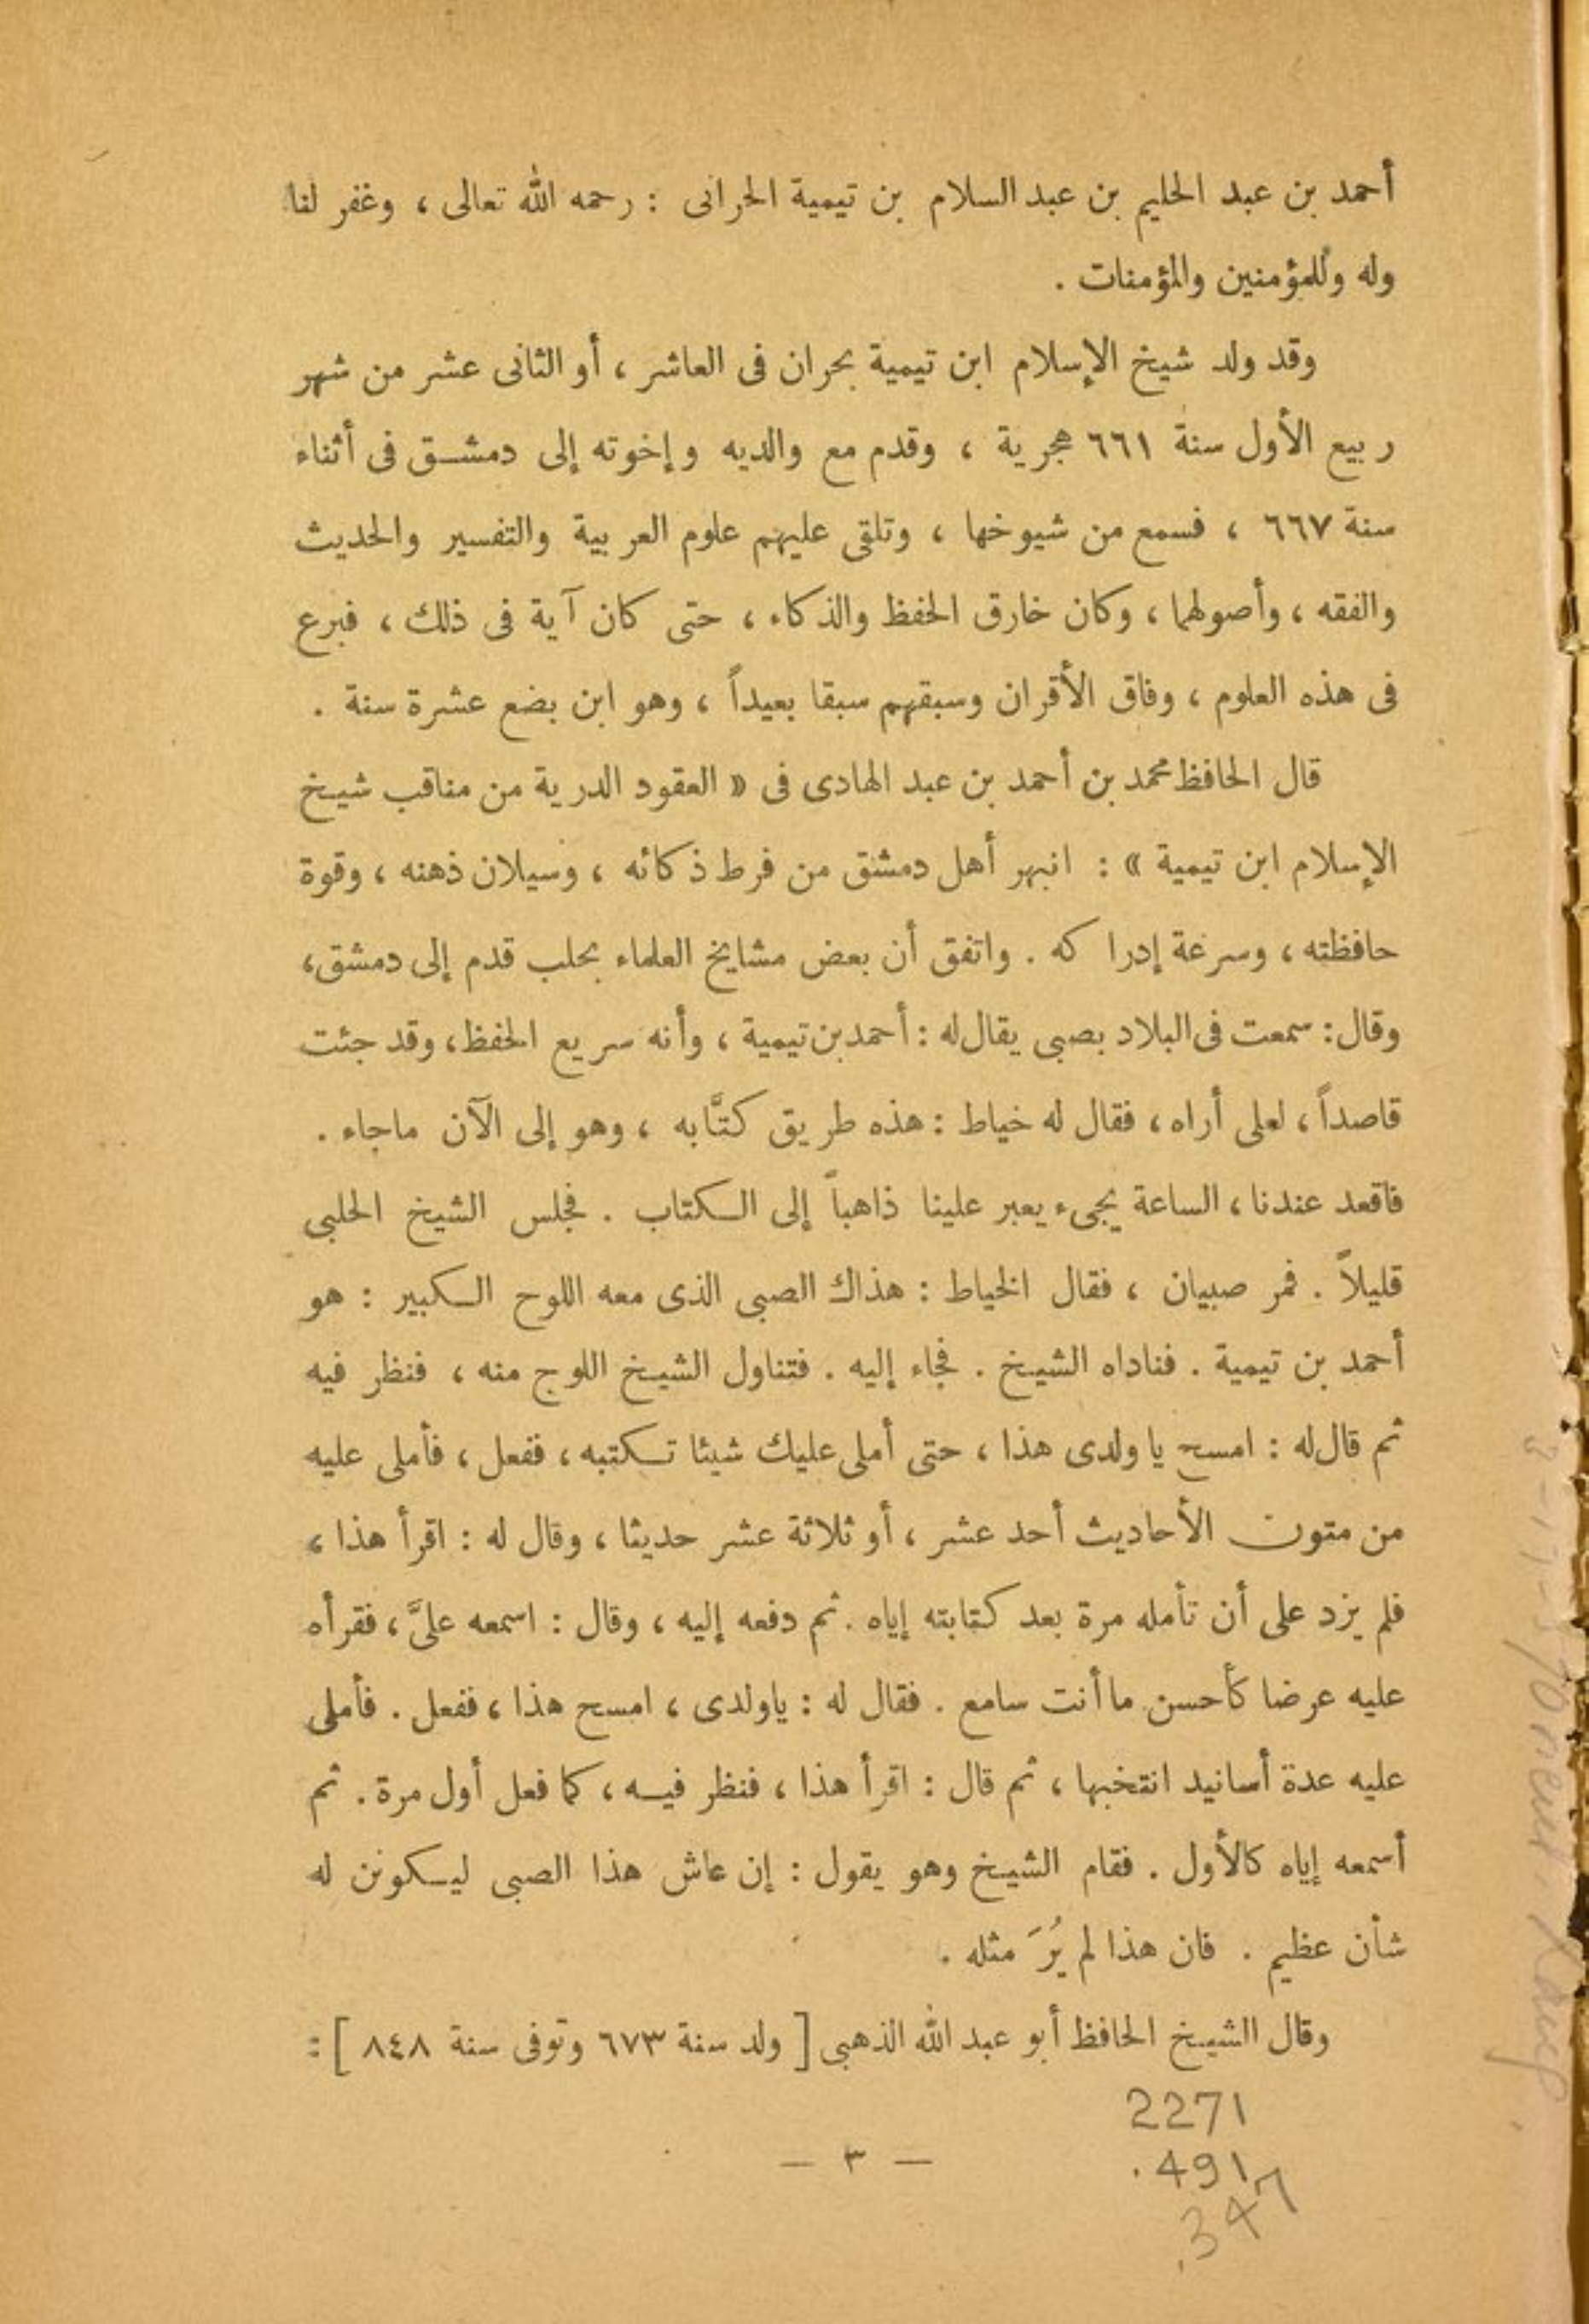 أحمد بن عبد الحليم بن عبد السلام بن تيمية الحرانى : رحمه الله تعالى ، وغفر لنا
وله وللمؤمنين والمؤمنات .
وقد ولد شيخ الإسلام ابن تيمية بحران فى العاشر ، أو الثانى عشر من شهر
ربيع الأول سنة ٦٦١ هجرية ، وقدم مع والديه وإخوته إلى دمشق فى أثناء
سنة ٦٦٧ ، فسمع من شيوخها ، وتلقى عليهم علوم العربية والتفسير والحديث
والفقه ، وأصولهما ، وكان خارق الحفظ والذكاء ، حتى كان آية فى ذلك ، فبرع
فى هذه العلوم ، وفاق الأقران وسبقهم سبقا بعيداً ، وهو ابن بضع عشرة سنة .
قال الحافظ محمد بن أحمد بن عبد الهادى فى « العقود الدرية من مناقب شيخ
الإسلام ابن تيمية » : انبهر أهل دمشق من فرط ذكائه ، وسيلان ذهنه ، وقوة
حافظته ، وسرعة إدراكه . واتفق أن بعض مشايخ العلماء بحلب قدم إلى دمشق،
وقال: سمعت فى البلاد بصبى يقال له : أحمد بن تيمية ، وأنه سريع الحفظ، وقد جئت
قاصداً ، لعلى أراه ، فقال له خياط : هذه طريق كتَّابه ، وهو إلى الآن ماجاء .
فاقعد عندنا ، الساعة يجىء يعبر علينا ذاهباً إلى الكتاب . فجلس الشيخ الحلبى
قليلاً . فمر صبيان ، فقال الخياط : هذاك الصبى الذى معه اللوح الكبير : هو
أحمد بن تيمية . فناداه الشيخ . فجاء إليه . فتناول الشيخ اللوح منه ، فنظر فيه
ثم قال له : امسح يا ولدى هذا ، حتى أملى عليك شيئا تكتبه ، ففعل ، فأملى عليه
من متون الأحاديث أحد عشر ، أو ثلاثة عشر حديثا ، وقال له : اقرأ هذا ،
فلم يزد على أن تأمله مرة بعد كتابته إياه . ثم دفعه إليه ، وقال : اسمعه علىَّ ، فقرأه
عليه عرضا كأحسن ما أنت سامع . فقال له : ياولدى ، امسح هذا ، ففعل . فأملى
عليه عدة أسانيد انتخبها ، ثم قال : اقرأ هذا ، فنظر فيه ، كما فعل أول مرة . ثم
أسمعه إياه كالأول . فقام الشيخ وهو يقول : إن عاش هذا الصبى ليكونن له
شأن عظيم . فان هذا لم يُرَ مثله .
وقال الشيخ الحافظ أبو عبد الله الذهبى [ ولد سنة ٦٧٣ وتوفى سنة ٨٤٨ ] :
2271
.491
.347
— ٣ —